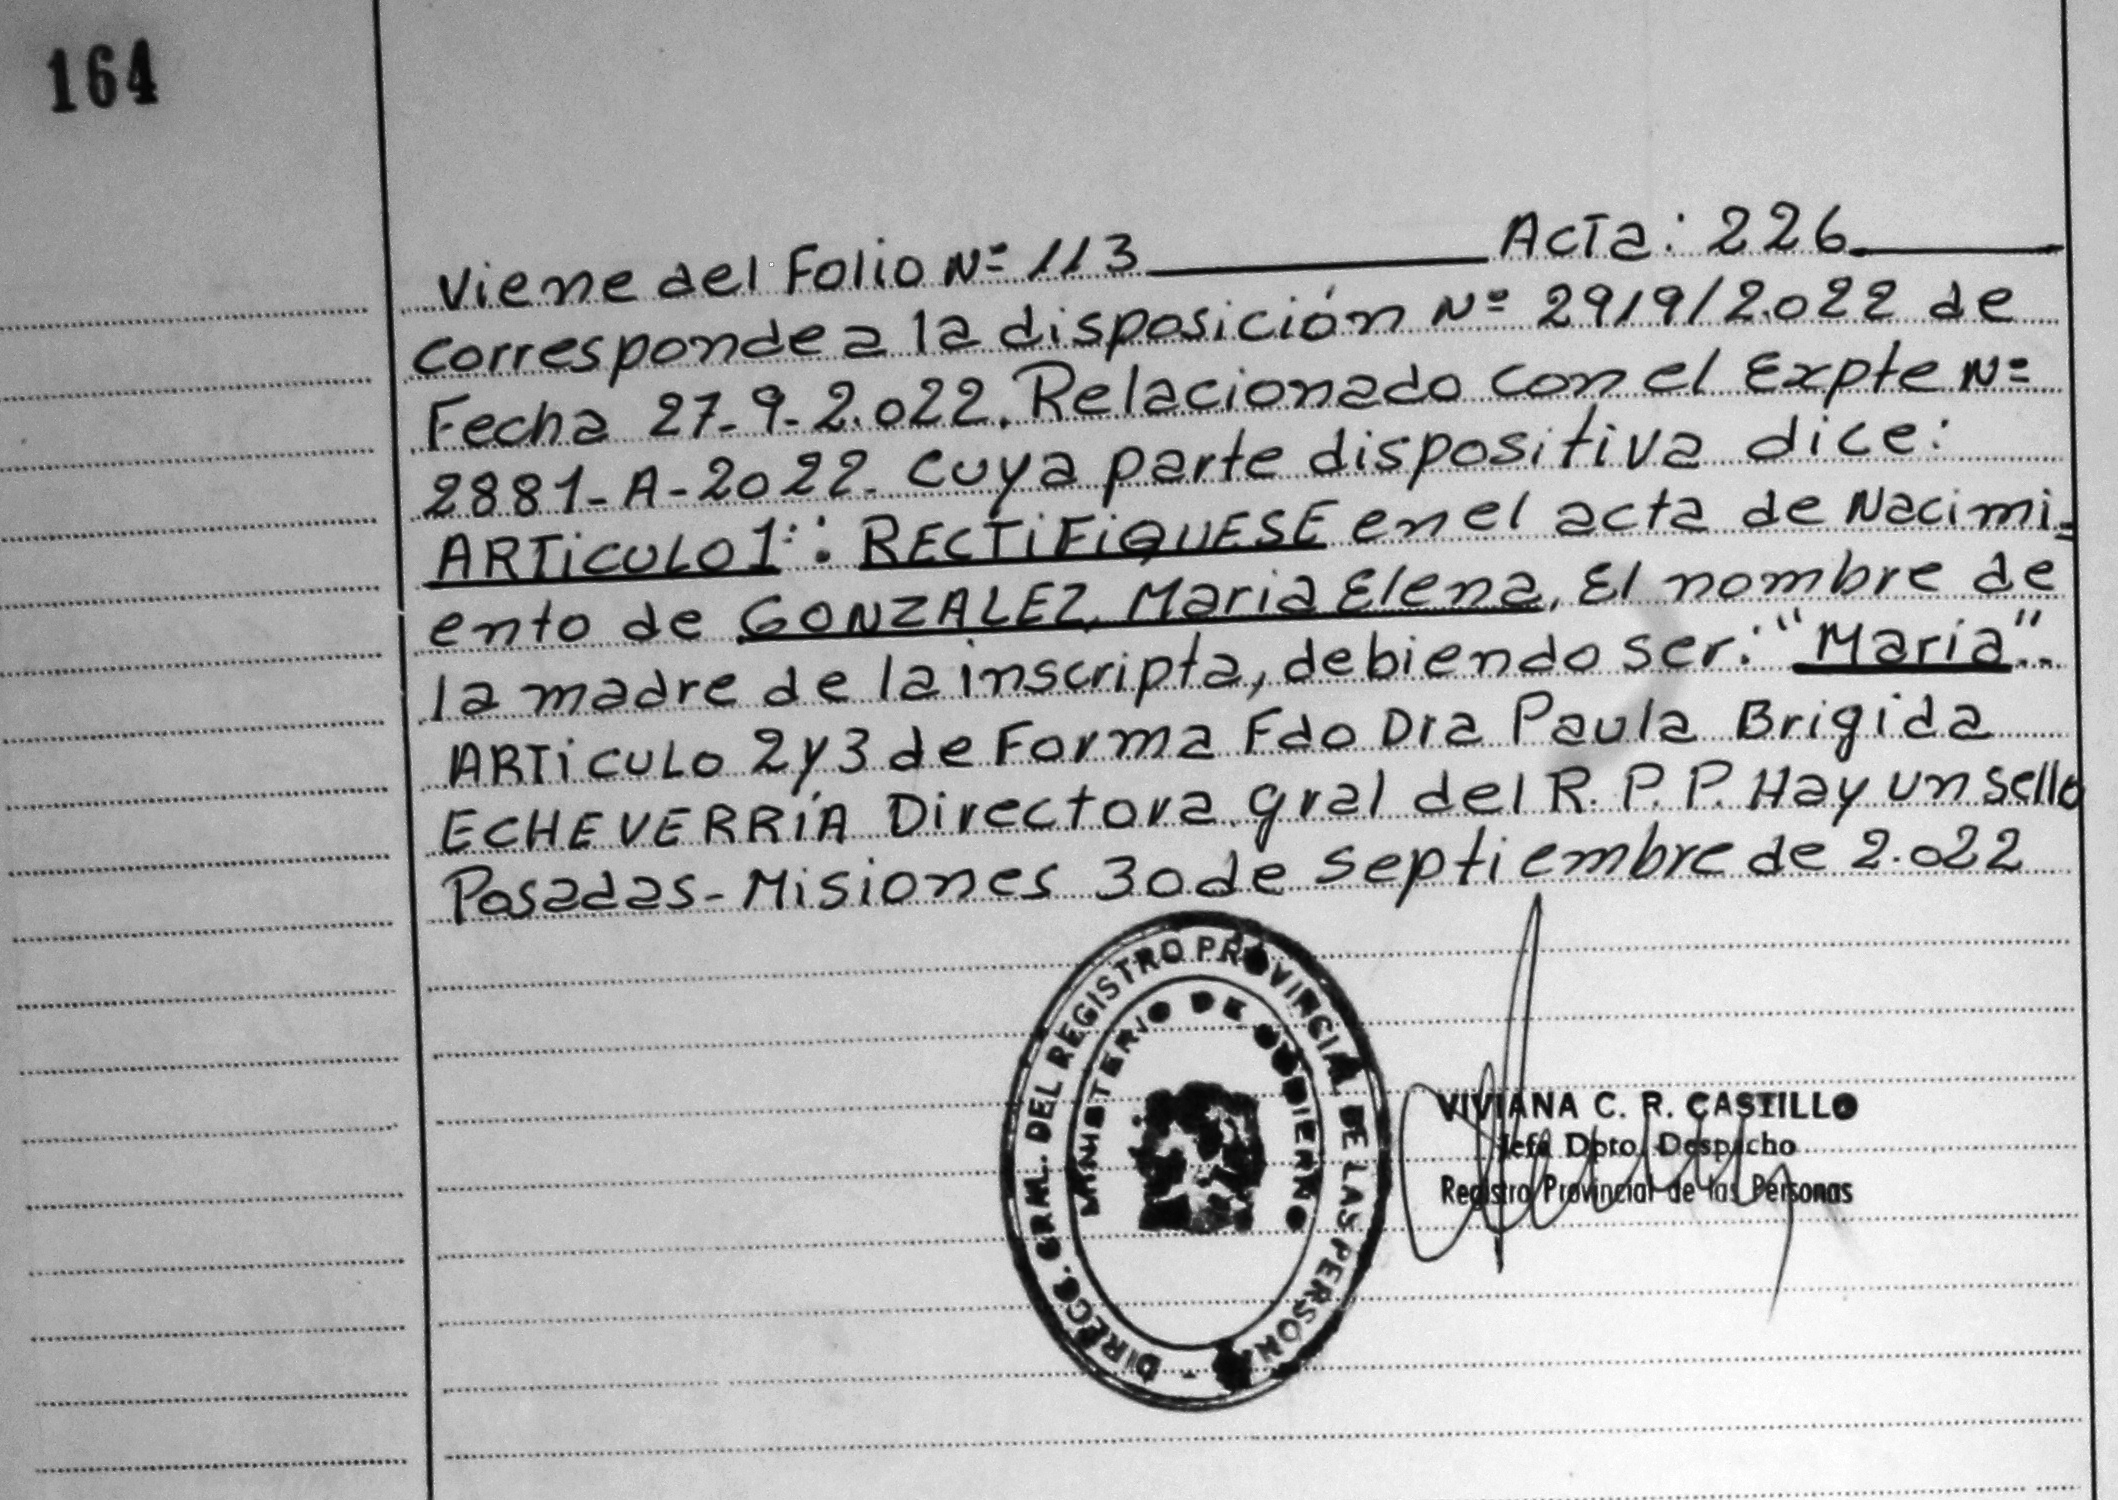 164
Viene del Folio Nº 113 Acta: 226
corresponde a la disposición Nº 2919/2.022 de
Fecha 27-9-2.022. Relacionado con el Expte Nº
2881-A-2022- cuya parte dispositiva dice:
ARTiCULO 1º: RECTiFiQUESE en el acta de Nacimi=
ento de GONZALEZ, Maria Elena, El nombre de
la madre de la inscripta, debiendo ser: "Maria"..
ARTiCULO 2 y 3 de Forma Fdo Dra Paula Brigida
ECHEVERRíA Directora gral del R. P. P. Hay un sello
Posadas-Misiones 30 de septiembre de 2.022
DIRECC. GRAL. DEL REGISTRO PROVINCIAL DE LAS PERSONAS
MINISTERIO DE GOBIERNO
VIVIANA C. R. CASTILLO
Jefa Dpto. Despacho
Registro Provincial de las Personas